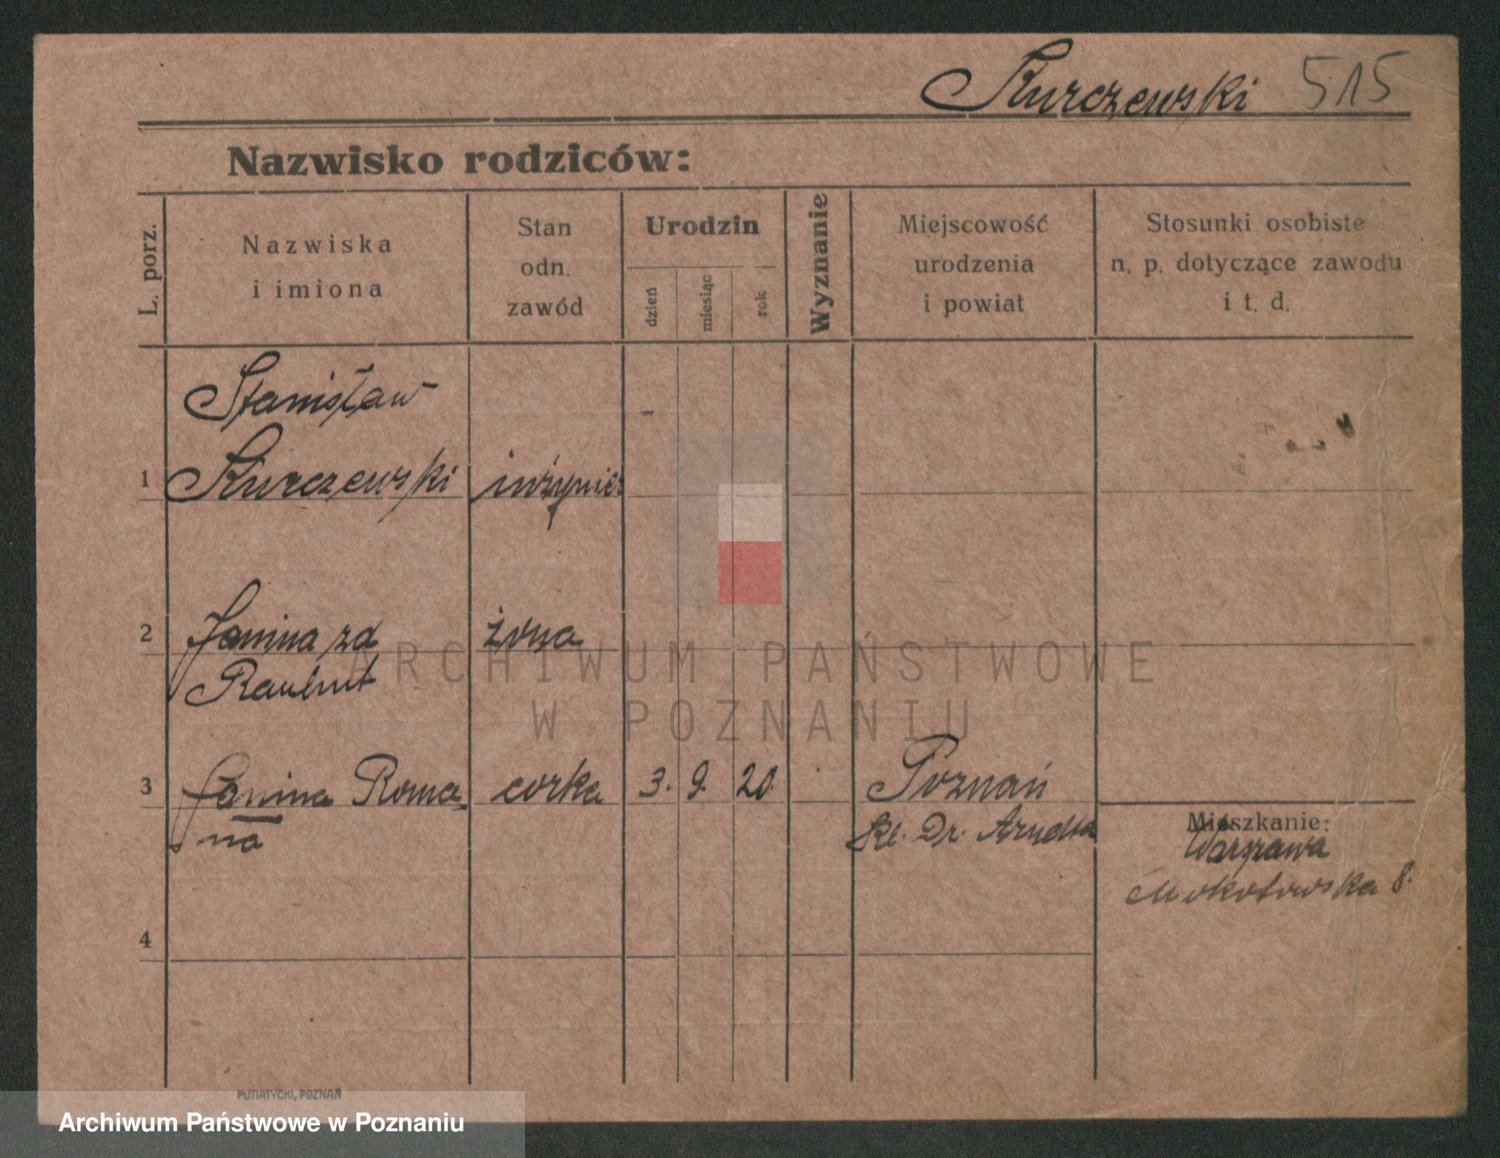 Kurczewski 515
Nazwisko rodziców:
L. porz.
Nazwiska
i imiona
Stan
odn.
zawód
Urodzin
dzień
miesiąc
rok
Wyznanie
Miejscowość
urodzenia
i powiat
Stosunki osobiste
n. p. dotyczące zawodu
i t. d.
Stanisław
1 Kurczewski inżynier
2 Janina zd żona
3 Janina Roma- corka 3. 9. 20. Poznań
na Kl. Dr.
Mieszkanie:
Warszawa
Mokotowska 8.
4
ARCHIWUM PAŃSTWOWE
W POZNANIU
PUTIATYCKI, POZNAŃ
Archiwum Państwowe w Poznaniu